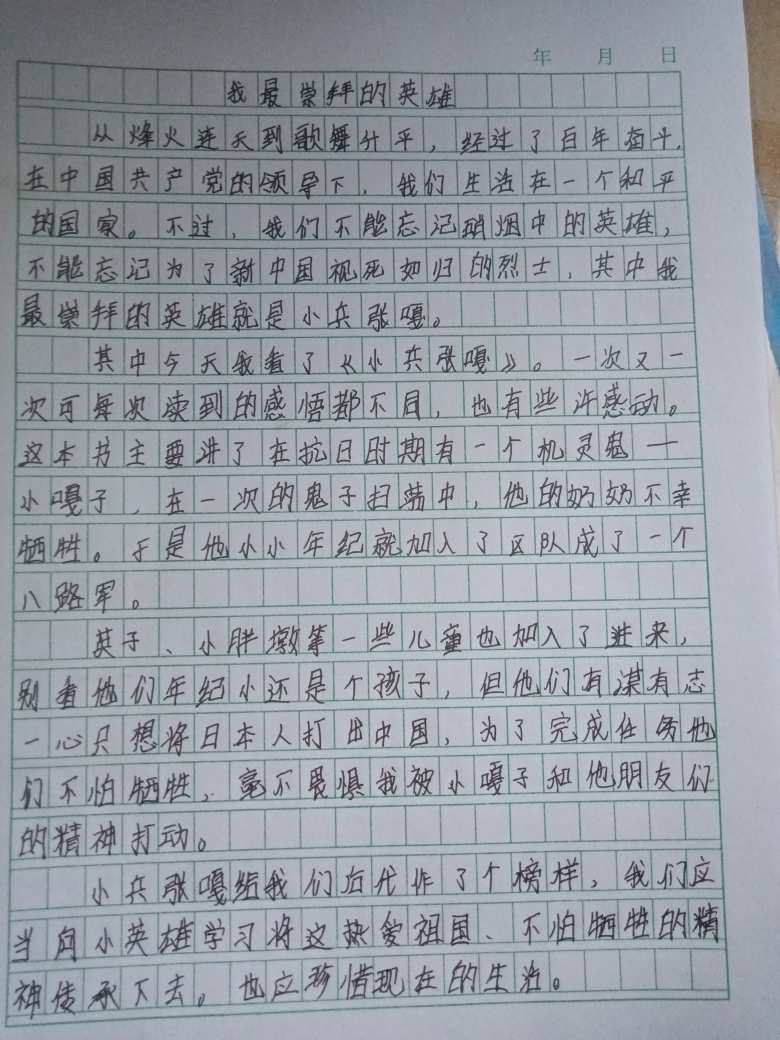 年 月 日
我最崇拜的英雄
从烽火连天到歌舞升平，经过了百年奋斗，
在中国共产党的领导下，我们生活在一个和平
的国家。不过，我们不能忘记硝烟中的英雄，
不能忘记为了新中国视死如归的烈士，其中我
最崇拜的英雄就是小兵张嘎。
其中今天我看了《小兵张嘎》。一次又一
次可每次读到的感悟都不同，也有些许感动。
这本书主要讲了在抗日时期有一个机灵鬼一
小嘎子，在一次的鬼子扫荡中，他的奶奶不幸
牺牲。于是他小小年纪就加入了区队成了一个
八路军。
英子、小胖墩等一些儿童也加入了进来，
别看他们年纪小还是个孩子，但他们有谋有志
一心只想将日本人打出中国，为了完成任务他
们不怕牺牲，毫不畏惧我被小嘎子和他朋友们
的精神打动。
小兵张嘎给我们后代作了个榜样，我们应
当向小英雄学习将这热爱祖国、不怕牺牲的精
神传承下去。也应珍惜现在的生活。